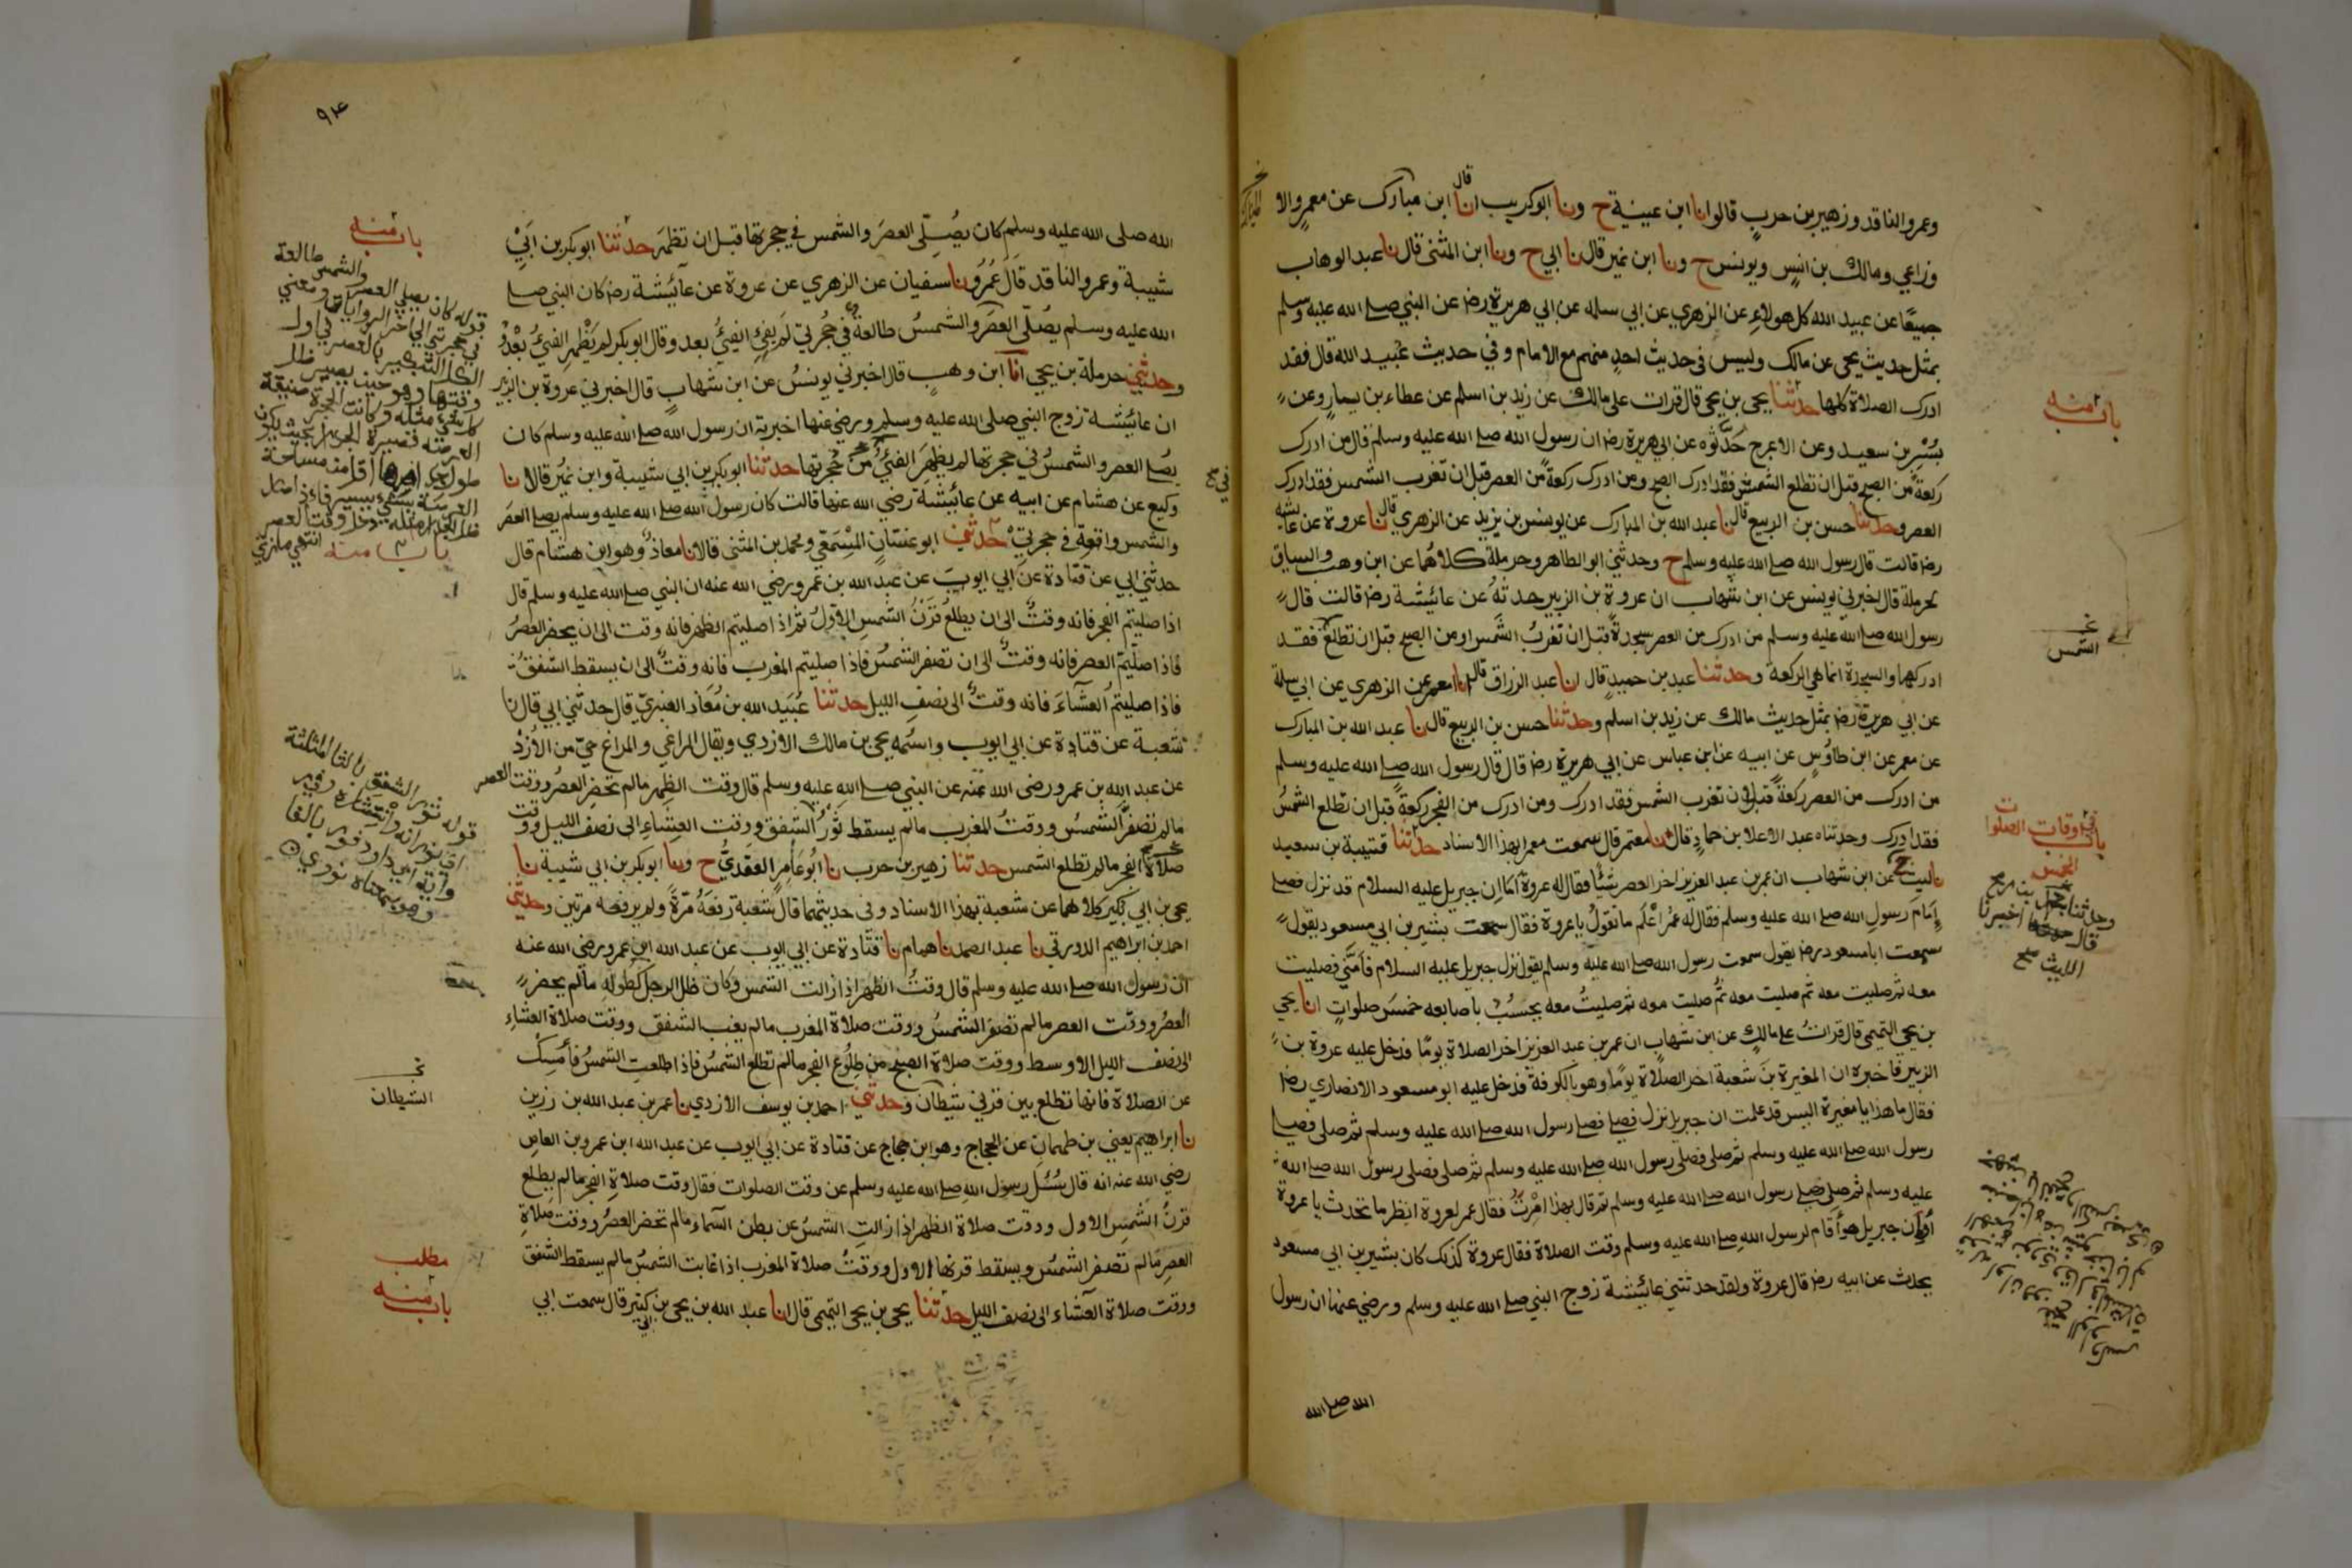 وعمرو الناقد وزهير بن حرب قالوا انا ابن عيينة ح ونا ابو كريب قال انا ابن مبارك عن معمر والا
وزاعي ومالك بن انس ويونس ح ونا ابن نمير قال نا ابي ح ونا ابن المثنى قال نا عبد الوهاب
جميعا عن عبيد الله كل هولاء عن الزهري عن ابي سلمه عن ابي هريرة رضه عن النبي صلى الله عليه وسلم
بمثل حديث يحيى عن مالك وليس في حديث احد منهم مع الامام وفي حديث عبيد الله قال فقد
ادرك الصلاة كلها حدثنا يحيى بن يحيى قال قرات على مالك عن زيد بن اسلم عن عطاء بن يسار وعن
بسر بن سعيد وعن الاعرج حدثوه عن ابي هريرة رضه ان رسول الله صلى الله عليه وسلم قال من ادرك
ركعة من الصبح قبل ان تطلع الشمس فقد ادرك الصبح ومن ادرك ركعة من العصر قبل ان تغرب الشمس فقد ادرك
العصر وحدثنا حسن بن الربيع قال نا عبد الله بن المبارك عن يونس بن يزيد عن الزهري قال نا عروة عن عايشه
رضه قالت قال رسول الله صلى الله عليه وسلم ح وحدثني ابو الطاهر وحرملة كلاهما عن ابن وهب والسياق
لحرملة قال اخبرني يونس عن ابن شهاب ان عروة بن الزبير حدثه عن عائشة رضه قالت قال
رسول الله صلى الله عليه وسلم من ادرك من العصر سجدة قبل ان تغرب الشمس او من الصبح قبل ان تطلع فقد
ادركها والسجدة انما هي الركعة وحدثنا عبد بن حميد قال انا عبد الرزاق قال انا معمر عن الزهري عن ابي سلمة
عن ابي هريرة رضه بمثل حديث مالك عن زيد بن اسلم وحدثنا حسن بن الربيع قال نا عبد الله بن المبارك
عن معمر عن ابن طاوس عن ابيه عن ابن عباس عن ابي هريرة رضه قال قال رسول الله صلى الله عليه وسلم
من ادرك من العصر ركعة قبل ان تغرب الشمس فقد ادرك ومن ادرك من الفجر ركعة قبل ان تطلع الشمس
فقد ادرك وحدثناه عبد الاعلا بن حماد قال نا معتمر قال سمعت معمرا بهذا الاسناد حدثنا قتيبة بن سعيد
نا ليث عن ابن شهاب ان عمر بن عبد العزيز اخر العصر شيئا فقال له عروة اما ان جبريل عليه السلام قد نزل فصلى
امام رسول الله صلى الله عليه وسلم فقال له عمر اعلم ما تقول يا عروة فقال سمعت بشير بن ابي مسعود يقول
سمعت ابا مسعود رضه يقول سمعت رسول الله صلى الله عليه وسلم يقول نزل جبريل عليه السلام فامني فصليت
معه ثم صليت معه ثم صليت معه ثم صليت معه ثم صليت معه يحسب باصابعه خمس صلوات انا يحيى
بن يحيى التميمي قال قرات على مالك عن ابن شهاب ان عمر بن عبد العزيز اخر الصلاة يوما فدخل عليه عروة بن
الزبير فاخبره ان المغيرة بن شعبة اخر الصلاة يوما وهو بالكوفة فدخل عليه ابو مسعود الانصاري رضه
فقال ما هذا يا مغيرة اليس قد علمت ان جبريل نزل فصلى فصلى رسول الله صلى الله عليه وسلم ثم صلى فصلى
رسول الله صلى الله عليه وسلم ثم صلى فصلى رسول الله صلى الله عليه وسلم ثم صلى فصلى رسول الله صلى الله
عليه وسلم ثم صلى فصلى رسول الله صلى الله عليه وسلم ثم قال بهذا امرت فقال عمر لعروة انظر ما تحدث يا عروة
أو ان جبريل هو أقام لرسول الله صلى الله عليه وسلم وقت الصلاة فقال عروة كذلك كان بشير بن ابي مسعود
يحدث عن ابيه رضه قال عروة ولقد حدثتني عائشة زوج النبي صلى الله عليه وسلم ورضي عنها ان رسول
الله صلى الله
باب منه
الشمس
باب اوقات الصلوات
الخمس
وحدثنا محمد بن رمح
قال اخبرنا
الليث صح
٩٤
الله صلى الله عليه وسلم كان يصلي العصر والشمس في حجرتها قبل ان تظهر حدثنا ابو بكر بن ابي
شيبة وعمرو الناقد قال عمرو نا سفيان عن الزهري عن عروة عن عائشة رضه كان النبي صلى
الله عليه وسلم يصلي العصر والشمس طالعة في حجرتي لم يفئ الفيئ بعد وقال ابو بكر لم يظهر الفيئ بعد
وحدثني حرملة بن يحيى انا ابن وهب قال اخبرني يونس عن ابن شهاب قال اخبرني عروة بن الزبير
ان عائشة زوج النبي صلى الله عليه وسلم ورضي عنها اخبرته ان رسول الله صلى الله عليه وسلم كان
يصلي العصر والشمس في حجرتها لم يظهر الفيئ من حجرتها حدثنا ابو بكر بن ابي شيبة وابن نمير قالا نا
وكيع عن هشام عن ابيه عن عائشة رضي الله عنها قالت كان رسول الله صلى الله عليه وسلم يصلي العصر
والشمس واقعة في حجرتي حدثني ابو غسان المسمعي ومحمد بن المثنى قالا نا معاذ وهو ابن هشام قال
حدثني ابي عن قتادة عن ابي ايوب عن عبد الله بن عمرو رضي الله عنه ان النبي صلى الله عليه وسلم قال
اذا صليتم الفجر فانه وقت الى ان يطلع قرن الشمس الاول ثم اذا صليتم الظهر فانه وقت الى ان يحضر العصر
فاذا صليتم العصر فانه وقت الى ان تصفر الشمس فاذا صليتم المغرب فانه وقت الى ان يسقط الشفق
فاذا صليتم العشاء فانه وقت الى نصف الليل حدثنا عبيد الله بن معاذ العنبري قال حدثني ابي قال نا
شعبة عن قتادة عن ابي ايوب واسمه يحيى بن مالك الازدي ويقال المراغي والمراغ حي من الازد
عن عبد الله بن عمرو رضى الله عنه عن النبي صلى الله عليه وسلم قال وقت الظهر مالم تحضر العصر ووقت العصر
مالم تصفر الشمس ووقت المغرب مالم يسقط ثور الشفق ووقت العشاء الى نصف الليل ووقت
صلاة الفجر مالم تطلع الشمس حدثنا زهير بن حرب نا ابو عامر العقدي ح ونا ابو بكر بن ابي شيبة نا
يحيى بن ابي بكير كلاهما عن شعبة بهذا الاسناد وفي حديثهما قال شعبة رفعه مرة ولم يرفعه مرتين وحدثني
احمد بن ابراهيم الدورقي نا عبد الصمد نا همام نا قتادة عن ابي ايوب عن عبد الله ابن عمرو رضى الله عنه
ان رسول الله صلى الله عليه وسلم قال وقت الظهر اذا زالت الشمس وكان ظل الرجل كطوله مالم يحضر
العصر ووقت العصر مالم تصفر الشمس ووقت صلاة المغرب مالم يغب الشفق ووقت صلاة العشاء
الى نصف الليل الاوسط ووقت صلاة الصبح من طلوع الفجر مالم تطلع الشمس فاذا طلعت الشمس فأمسك
عن الصلاة فانها تطلع بين قرني شيطان وحدثني احمد بن يوسف الازدي نا عمر بن عبد الله بن رزين
نا ابراهيم يعني بن طهمان عن الحجاج وهو ابن حجاج عن قتادة عن ابي ايوب عن عبد الله ابن عمرو بن العاص
رضي الله عنه انه قال سئل رسول الله صلى الله عليه وسلم عن وقت الصلوات فقال وقت صلاة الفجر مالم يطلع
قرن الشمس الاول ووقت صلاة الظهر اذا زالت الشمس عن بطن السماء مالم تحضر العصر ووقت صلاة
العصر مالم تصفر الشمس ويسقط قرنها الاول ووقت صلاة المغرب اذا غابت الشمس مالم يسقط الشفق
ووقت صلاة العشاء الى نصف الليل حدثنا يحيى بن يحيى التميمي قال انا عبد الله بن يحيى بن ابي كثير قال سمعت ابي
باب منه
قوله كان يصلي العصر والشمس طالعة
باب منه
قوله ثور الشفق بالثا المثلثة
اي ثورانه وانتشاره وفي
رواية ابي داود فور بالفا
وهو بمعناه نووي
الشيطان
مطلب
باب منه